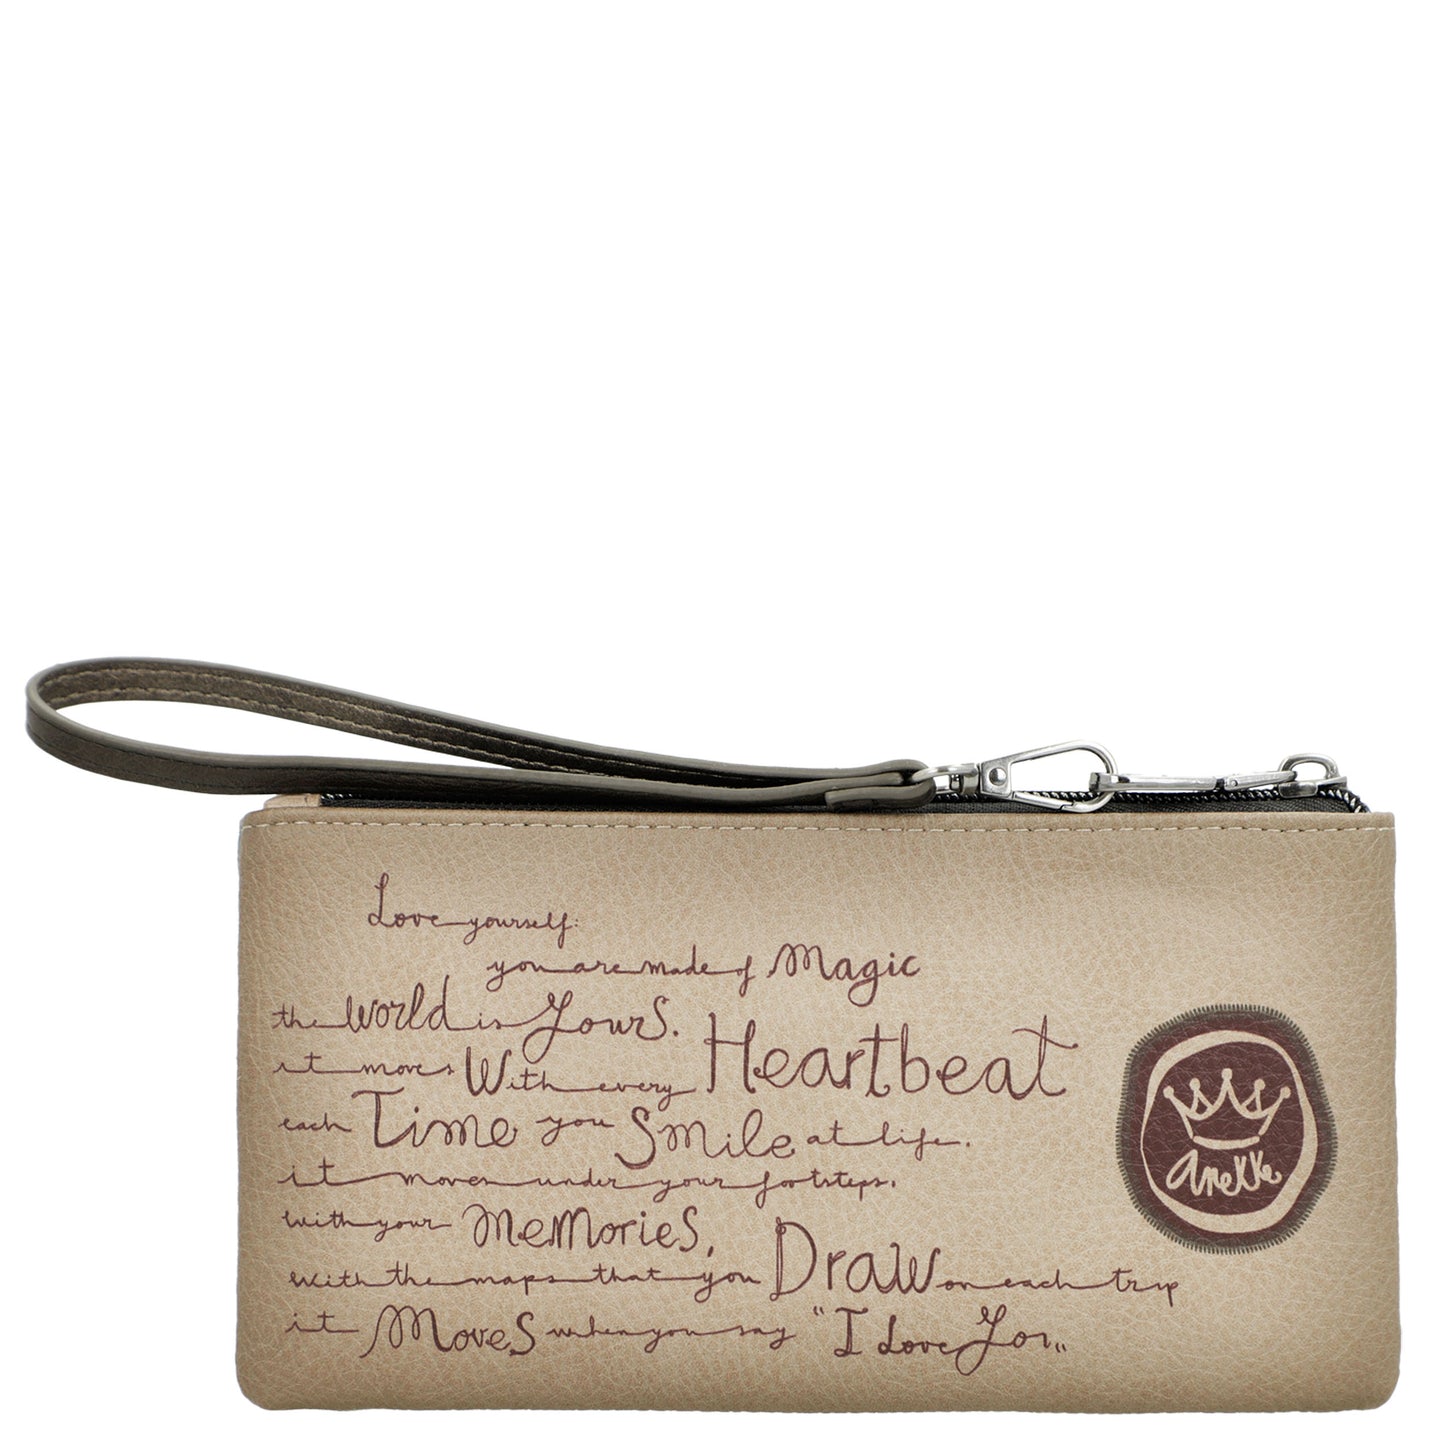 Love yourself:
you are made of Magic
the world is Yours.
it moves With every Heartbeat
each Time you Smile at life.
it moves under your footsteps.
with your Memories,
with the maps that you Draw on each trip
it Moves when you say "I Love You„
anekke